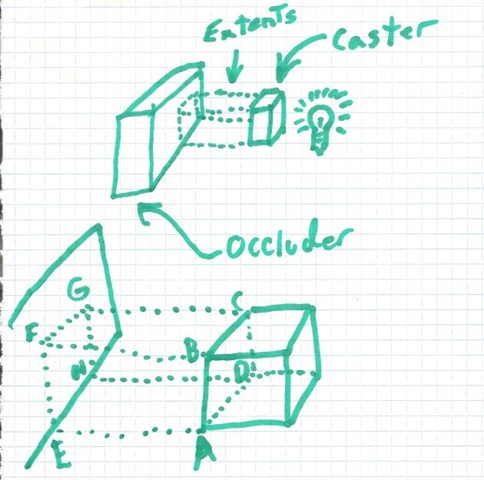 Extents
Caster
Occluder
G
C
F
B
H
D
E
A